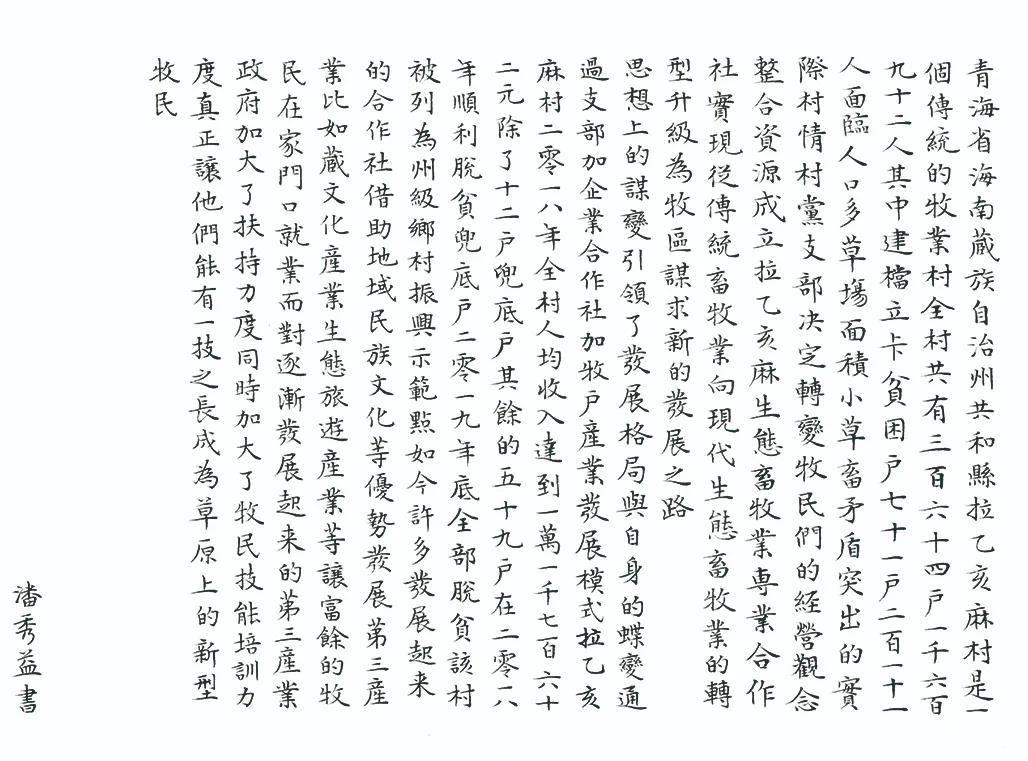 青海省海南藏族自治州共和縣拉乙亥麻村是一
個傳統的牧業村全村共有三百六十四户一千六百
九十二人其中建檔立卡貧困户七十一户二百一十一
人面臨人口多草場面積小草畜矛盾突出的實
際村情村黨支部决定轉變牧民們的經營觀念
整合資源成立拉乙亥麻生態畜牧業專業合作
社實現從傳統畜牧業向現代生態畜牧業的轉
型升級為牧區謀求新的發展之路
思想上的謀變引領了發展格局與自身的蝶變通
過支部加企業合作社加牧户產業發展模式拉乙亥
麻村二零一八年全村人均收入達到一萬一千七百六十
二元除了十二户兜底户其餘的五十九户在二零一八
年順利脫貧兜底户二零一九年底全部脫貧該村
被列為州級鄉村振興示範點如今許多發展起来
的合作社借助地域民族文化等優勢發展第三產
業比如藏文化產業生態旅遊產業等讓富餘的牧
民在家門口就業而對逐漸發展起来的第三產業
政府加大了扶持力度同時加大了牧民技能培訓力
度真正讓他們能有一技之長成為草原上的新型
牧民
潘秀益書